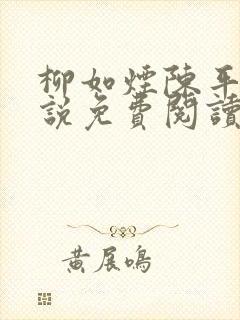 柳如煙陳平
說免費閱讀
黃展鳴